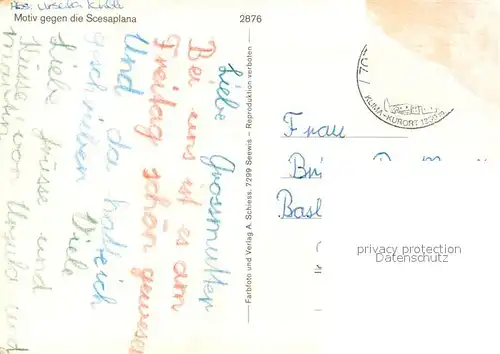 Abs. Ursula
Motiv gegen die Scesaplana
2876
Liebe Grossmutter
Bei uns ist es am
Freitag schön gewesen
Und da hab ich
geschrieben Viele
Liebe Grüsse und
Küsse von Ursula und
Farbfoto und Verlag A. Schiess, 7299 Seewis — Reproduktion verboten
KLIMA-KURORT
Frau
Bri
Basl
privacy protection
Datenschutz